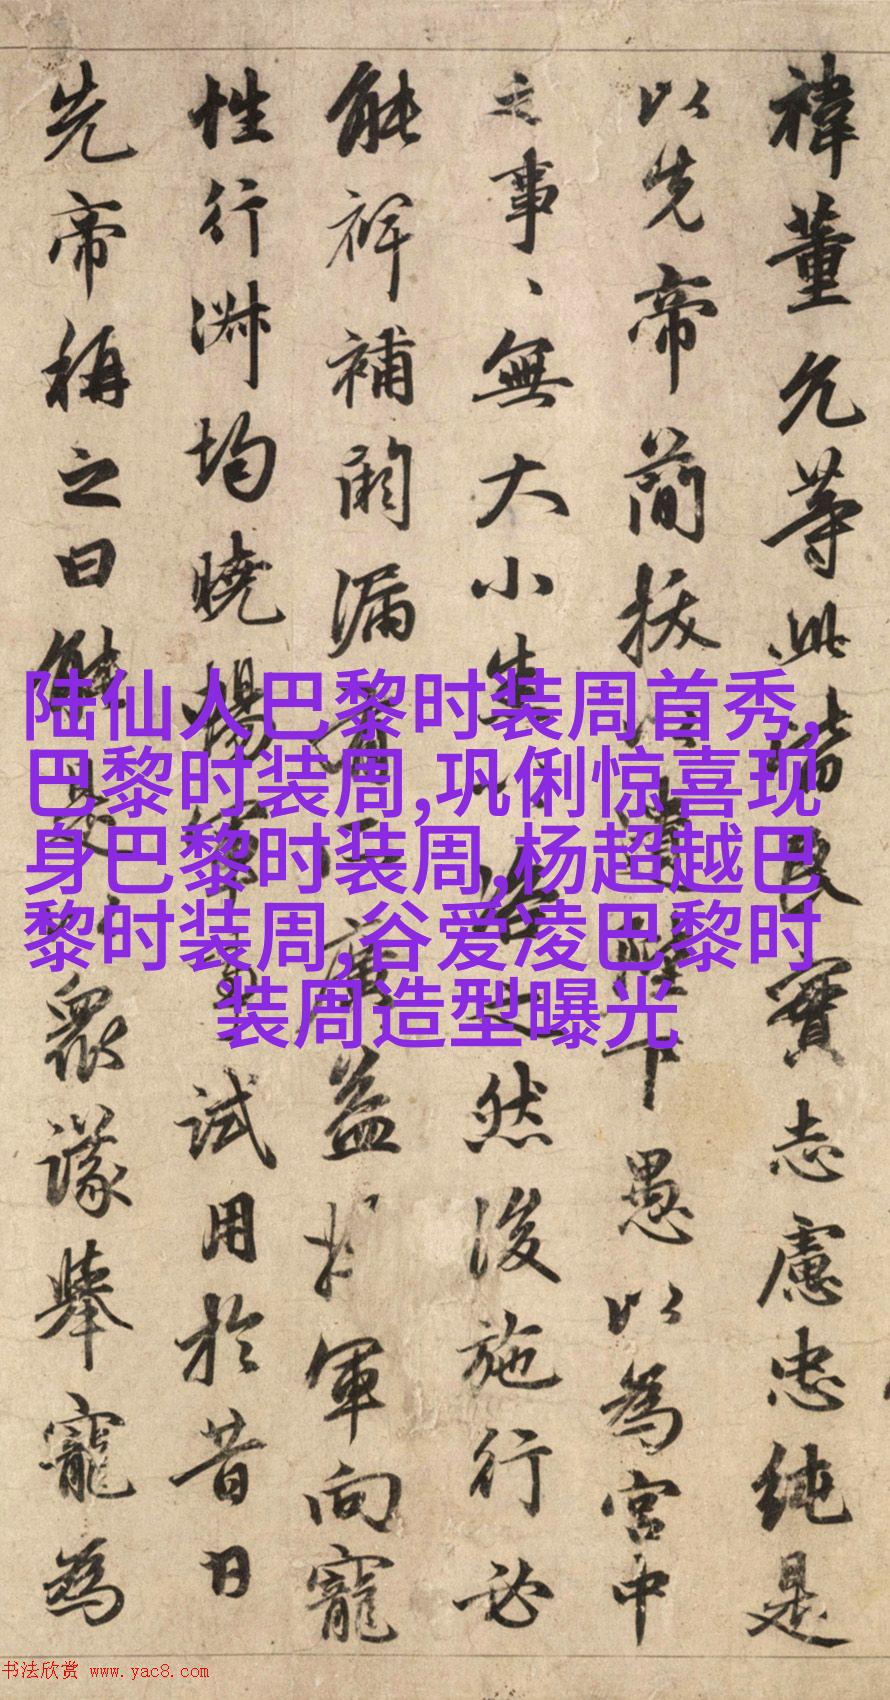 禕董允等此皆良實志慮忠純是
以先帝簡拔以遺陛下愚以為宮中
之事、無大小悉以咨之然後施行必
能裨補闕漏有所廣益將軍向寵
性行淑均曉暢軍事試用於昔日
先帝稱之曰能是以衆議舉寵為
陆仙人巴黎时装周首秀,
巴黎时装周,巩俐惊喜现
身巴黎时装周,杨超越巴
黎时装周,谷爱凌巴黎时
装周造型曝光
书法欣赏 www.yac8.com